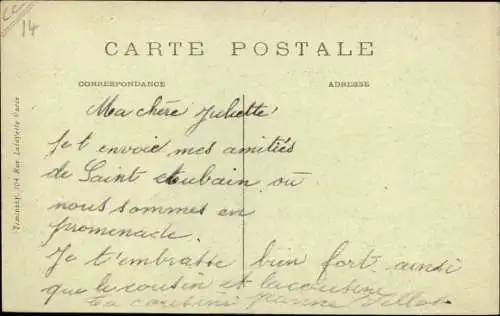 14
CARTE POSTALE
CORRESPONDANCE
ADRESSE
Ma chère Juliette
Je t envoie mes amitiés
de Saint Aubain où
nous sommes en
promenade.
Je t'embrasse bien fort ainsi
que le cousin et la cousine
ta cousine Jeanne
104 Rue Lafayette Paris